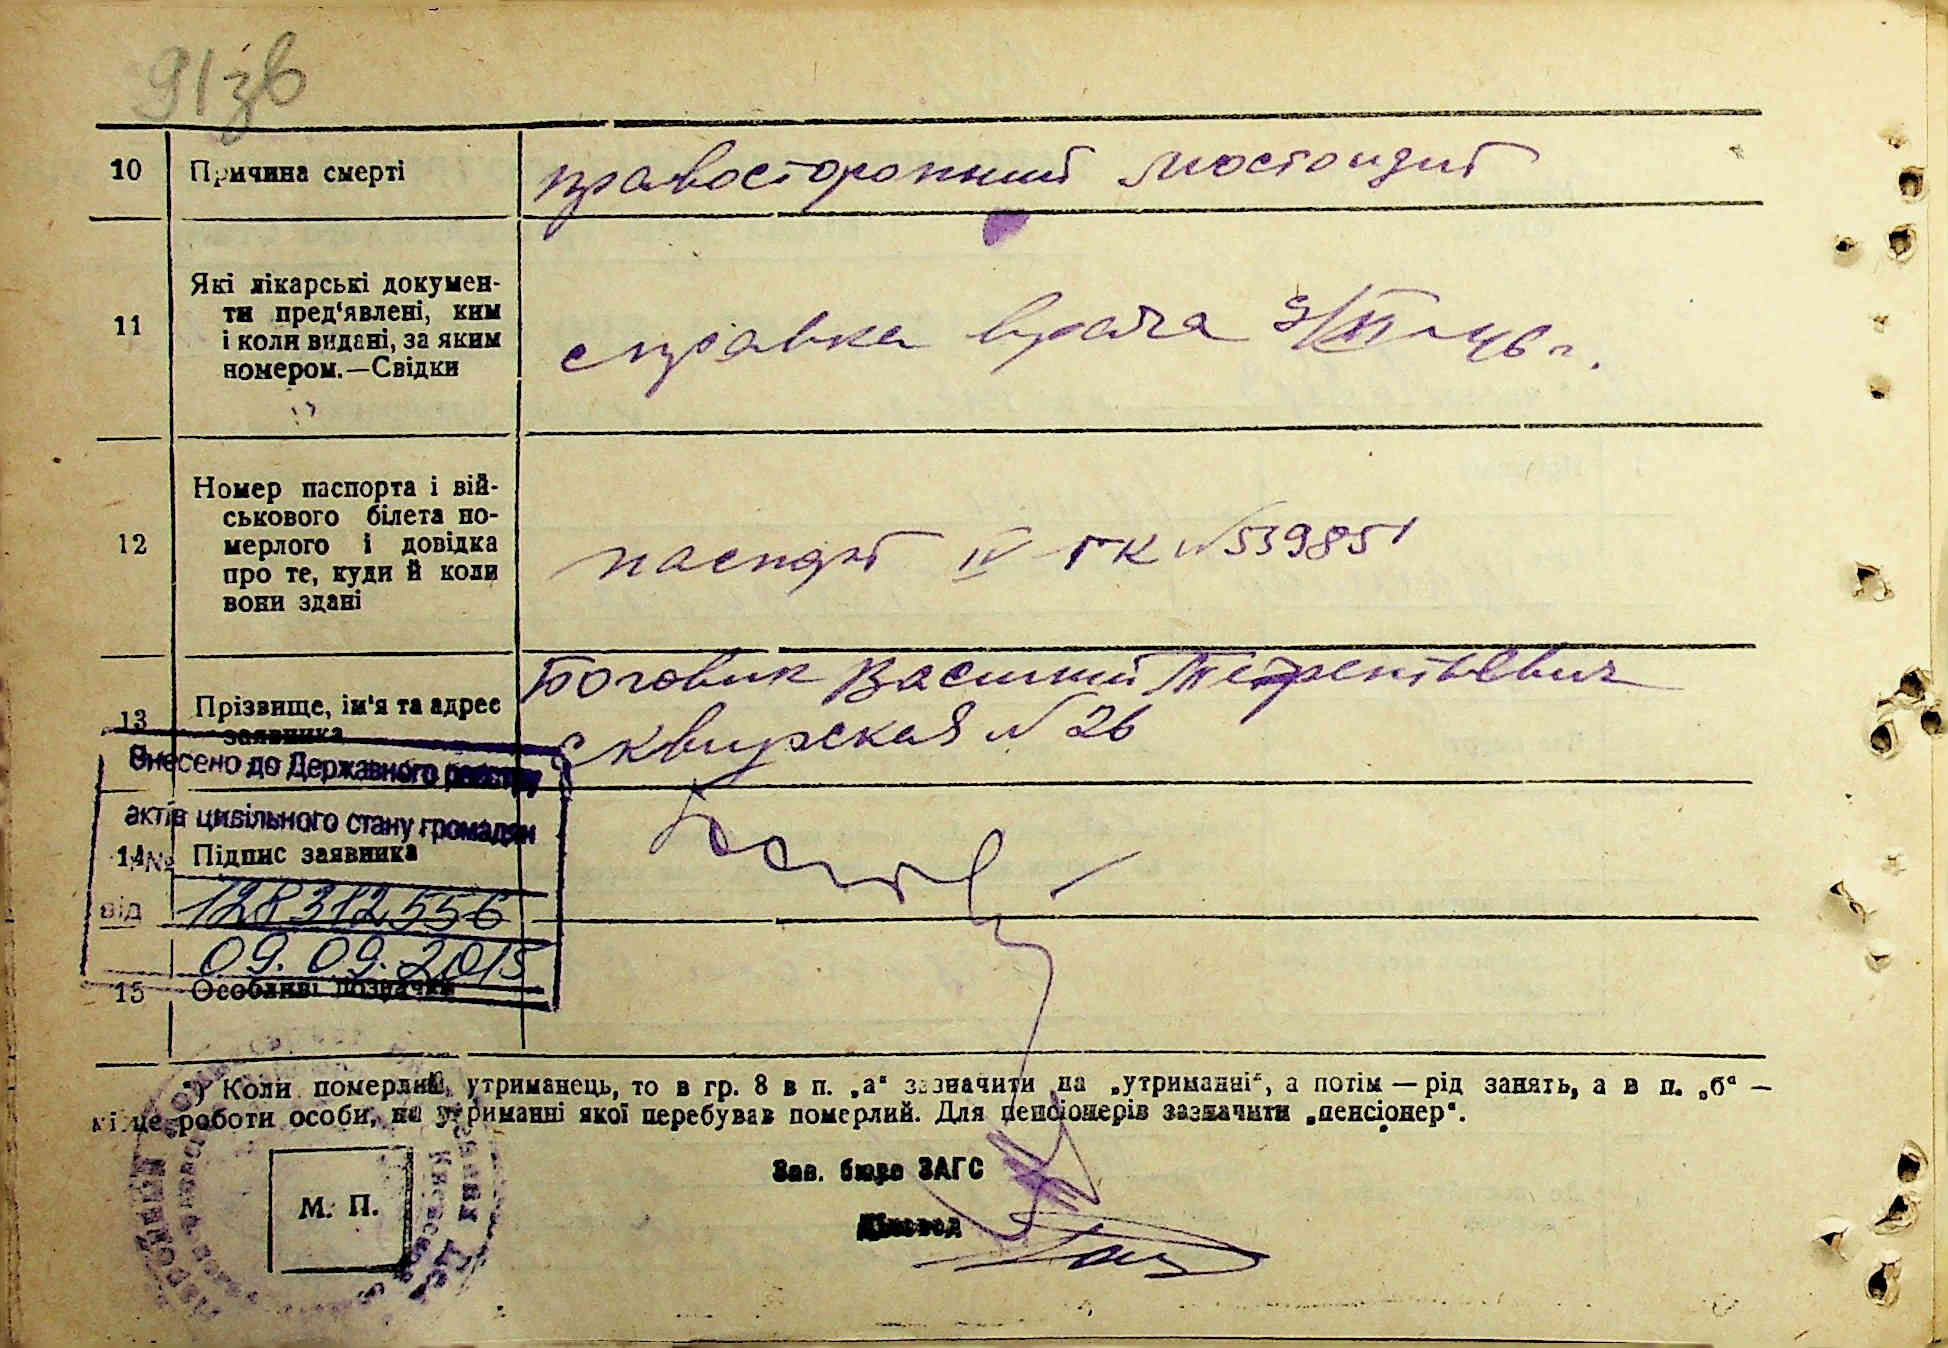 91зв
10 Причина смерті правосторонний мастоидит
11 Які лікарські докумен-
ти пред'явлені, ким
і коли видані, за яким
номером.—Свідки
справка врача 9/XI-46 г.
12 Номер паспорта і вій-
ськового білета по-
мерлого і довідка
про те, куди й коли
вони здані
паспорт IV ГК №539851
13 Прізвище, ім'я та адрес
заявника
Боговик Василий Терентьевич
Сквирская №26
Внесено до Державного реєстру
актів цивільного стану громадян
14 Підпис заявника
№ 128312556
від 09.09.2015
15 Особливі позначки
*) Коли померлий, утриманець, то в гр. 8 в п. „а“ зазначити на „утриманні“, а потім — рід занять, а в п. „б“ —
місце роботи особи, на утриманні якої перебував померлий. Для пенсіонерів зазначити „пенсіонер“.
Зав. бюро ЗАГС
М. П.
Діловод